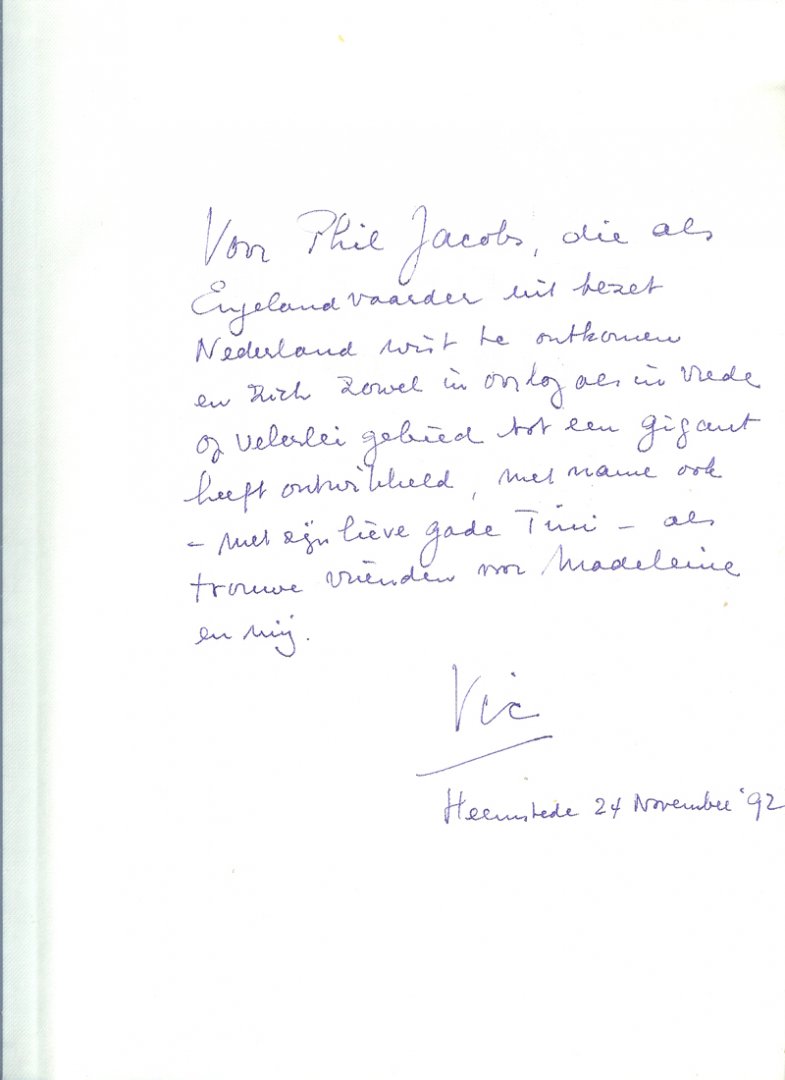 Voor Phil Jacobs, die als
Engelandvaarder uit bezet
Nederland wist te ontkomen
en zich zowel in oorlog als in vrede
op velerlei gebied tot een gigant
heeft ontwikkeld, met name ook
– met zijn lieve gade Timi – als
trouwe vrienden voor Madeleine
en mij.
Vic
Heemstede 24 November '92